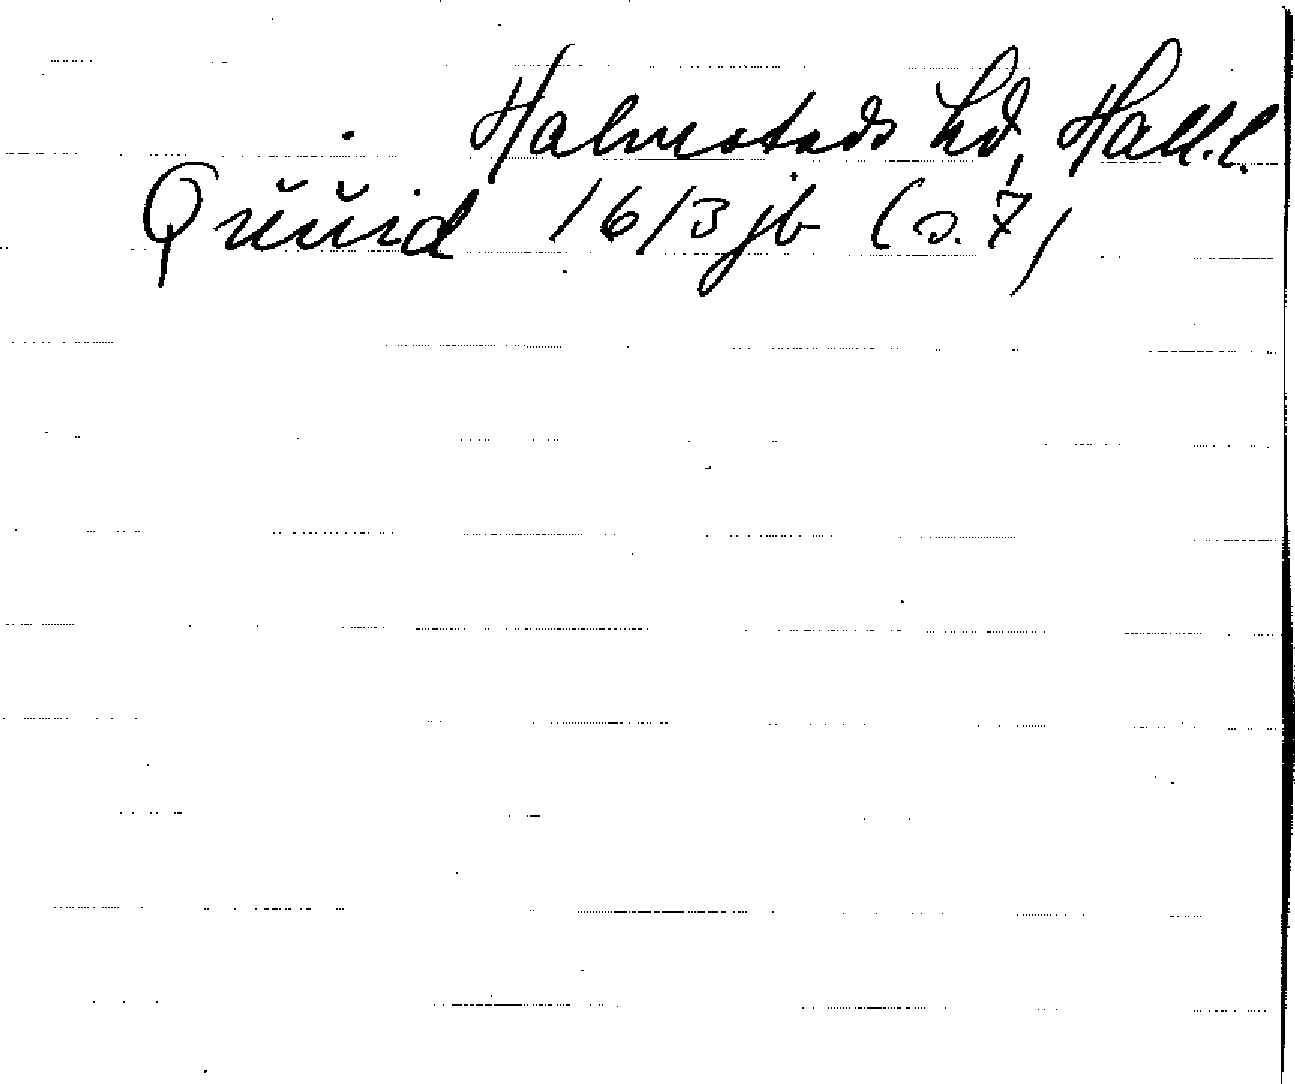 Halmstads hd, Hall.l.
Qŭŭid 1613 jb (s. 7)